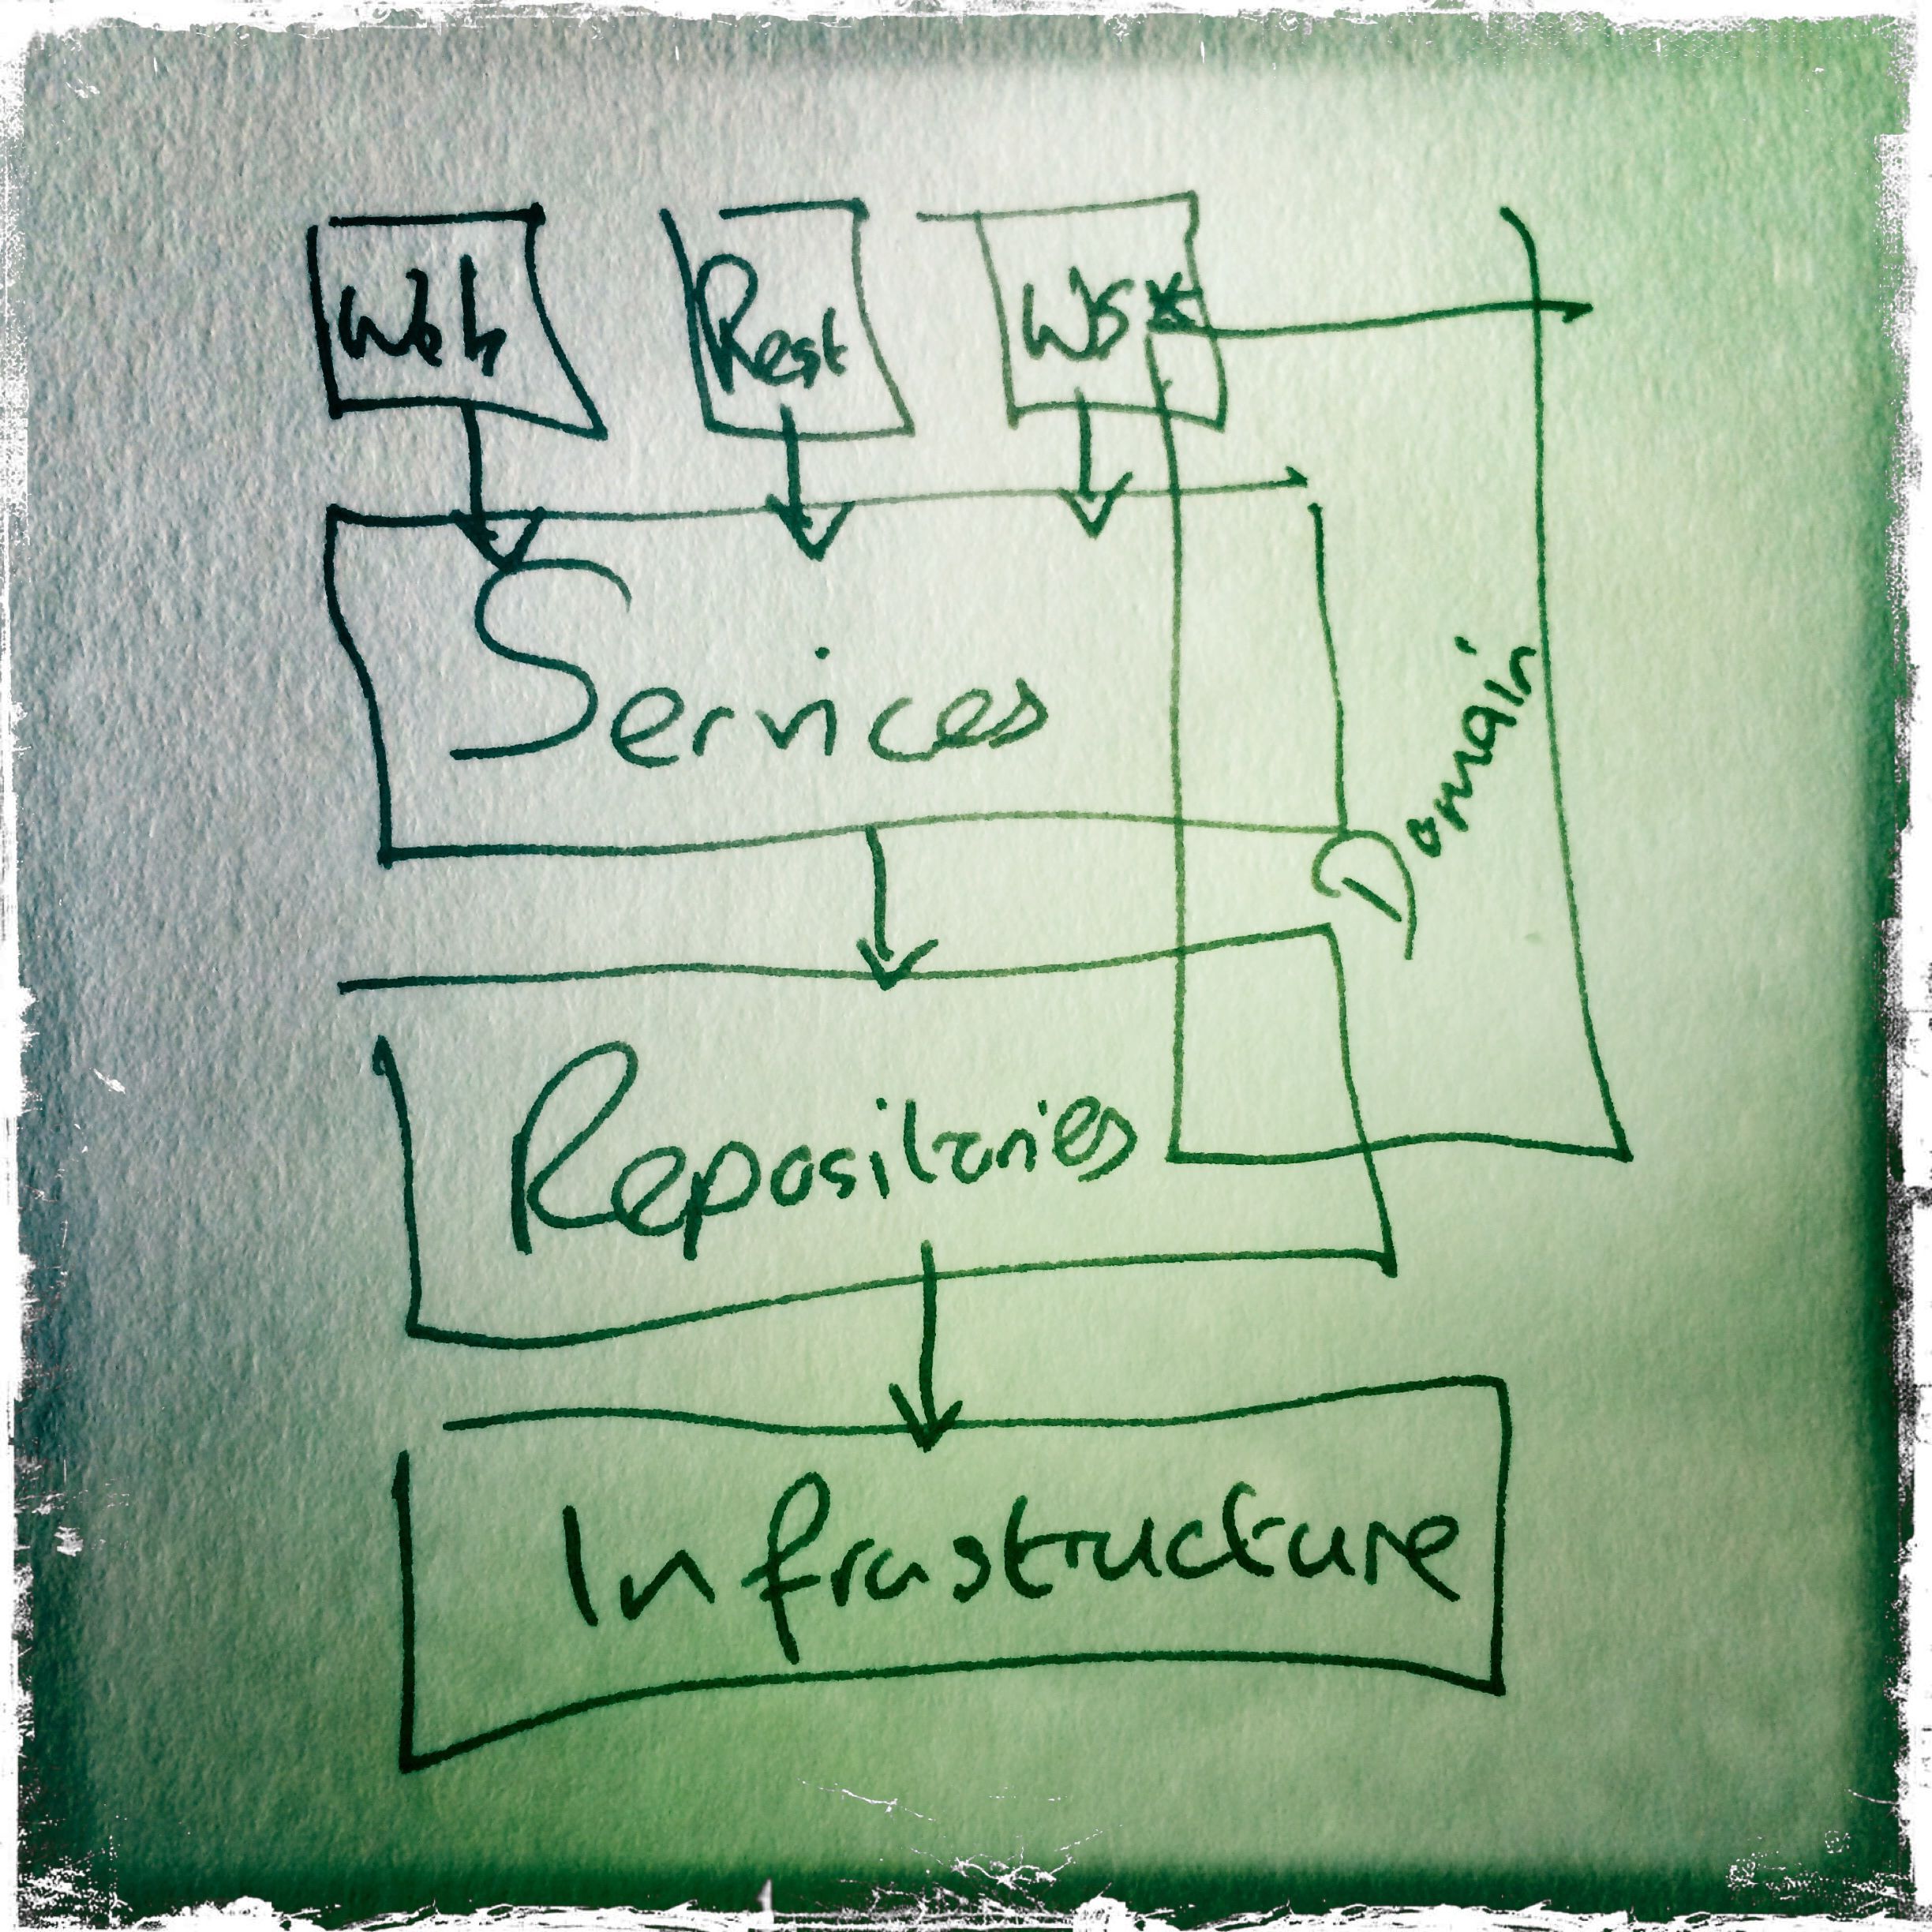 Web Rest WS*
Services
Domain
Repositories
Infrastructure